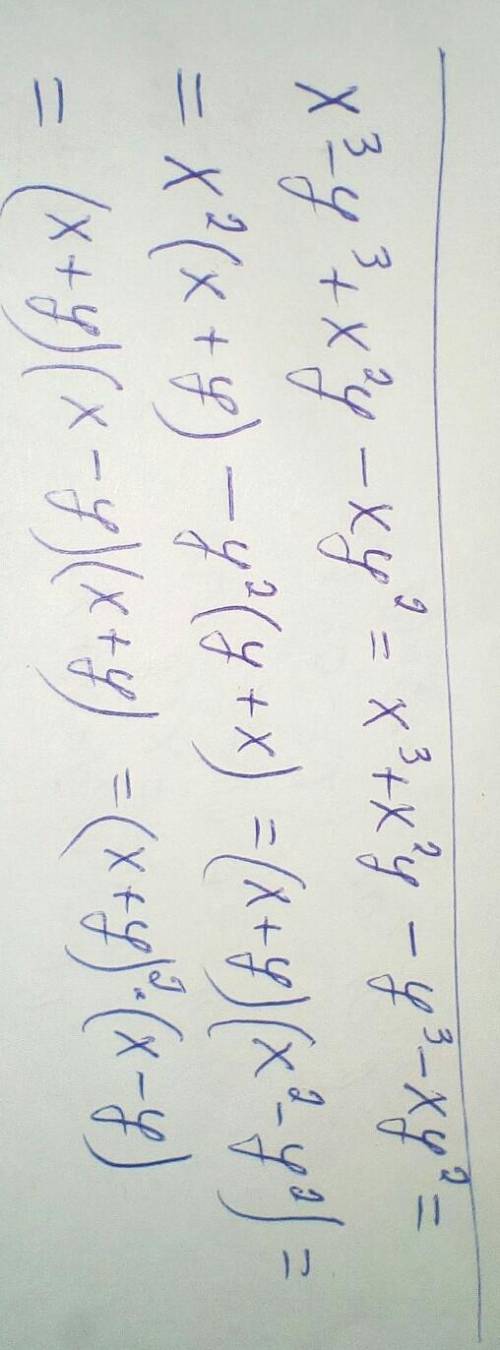 x³-y³+x²y-xy²=x³+x²y-y³-xy²=
=x²(x+y)-y²(y+x)=(x+y)(x²-y²)=
=(x+y)(x-y)(x+y)=(x+y)²·(x-y)